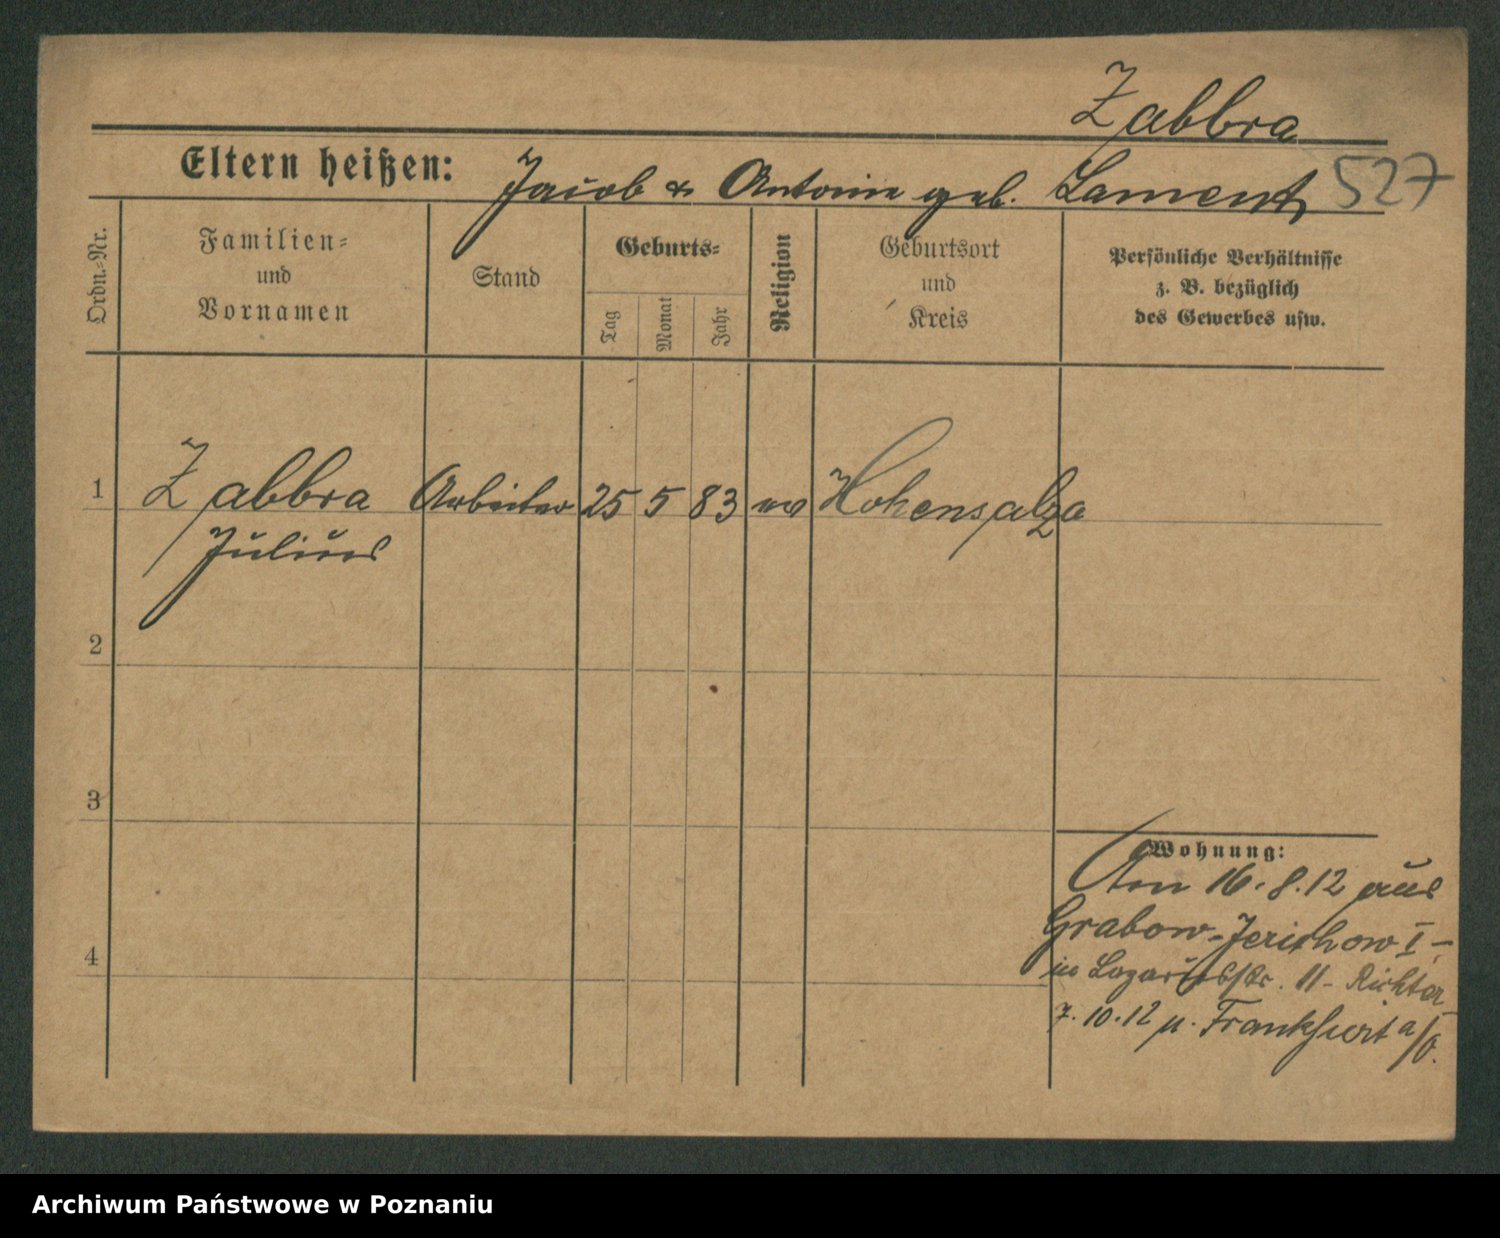 Zabbra
Eltern heißen: Jacob & Antonie geb. Lament 527
Ordn.-Nr.
Familien-
und
Vornamen
Stand
Geburts-
Tag
Monat
Jahr
Religion
Geburtsort
und
Kreis
Persönliche Verhältnisse
z. B. bezüglich
des Gewerbes usw.
1 Zabbra Arbeiter 25 5 83 ev Hohensalza
Julius
2
3
4
Wohnung:
Am 16.8.12 aus
Grabow-Jerichow I -
in Lazarusstr. 11 - Richter
7.10.12 n. Frankfurt a/O.
Archiwum Państwowe w Poznaniu